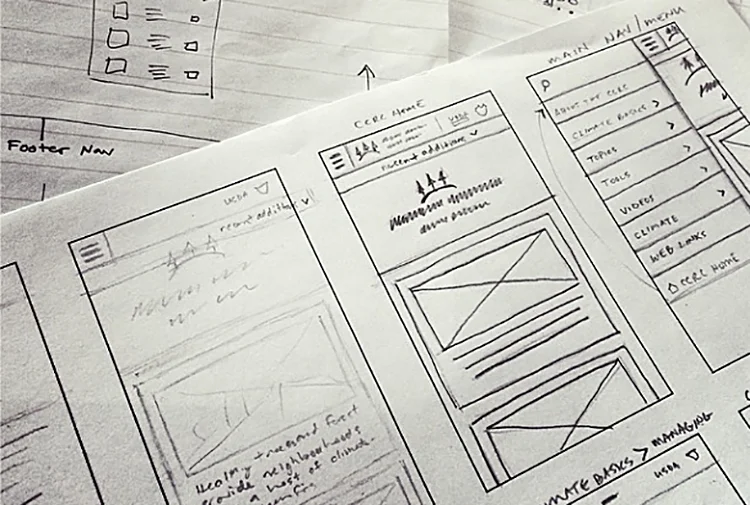 Footer Nav
USDA
recent additions
Healthy trees and forest
provide neighbourhoods
a host of climate.
CCRC HOME
USDA
recent additions
MAIN NAV/MENU
ABOUT THE CCRC
CLIMATE BASICS >
TOPICS >
TOOLS >
VIDEOS
CLIMATE >
WEB LINKS
CCRC HOME
MATE BASICS > MANAGING
USDA